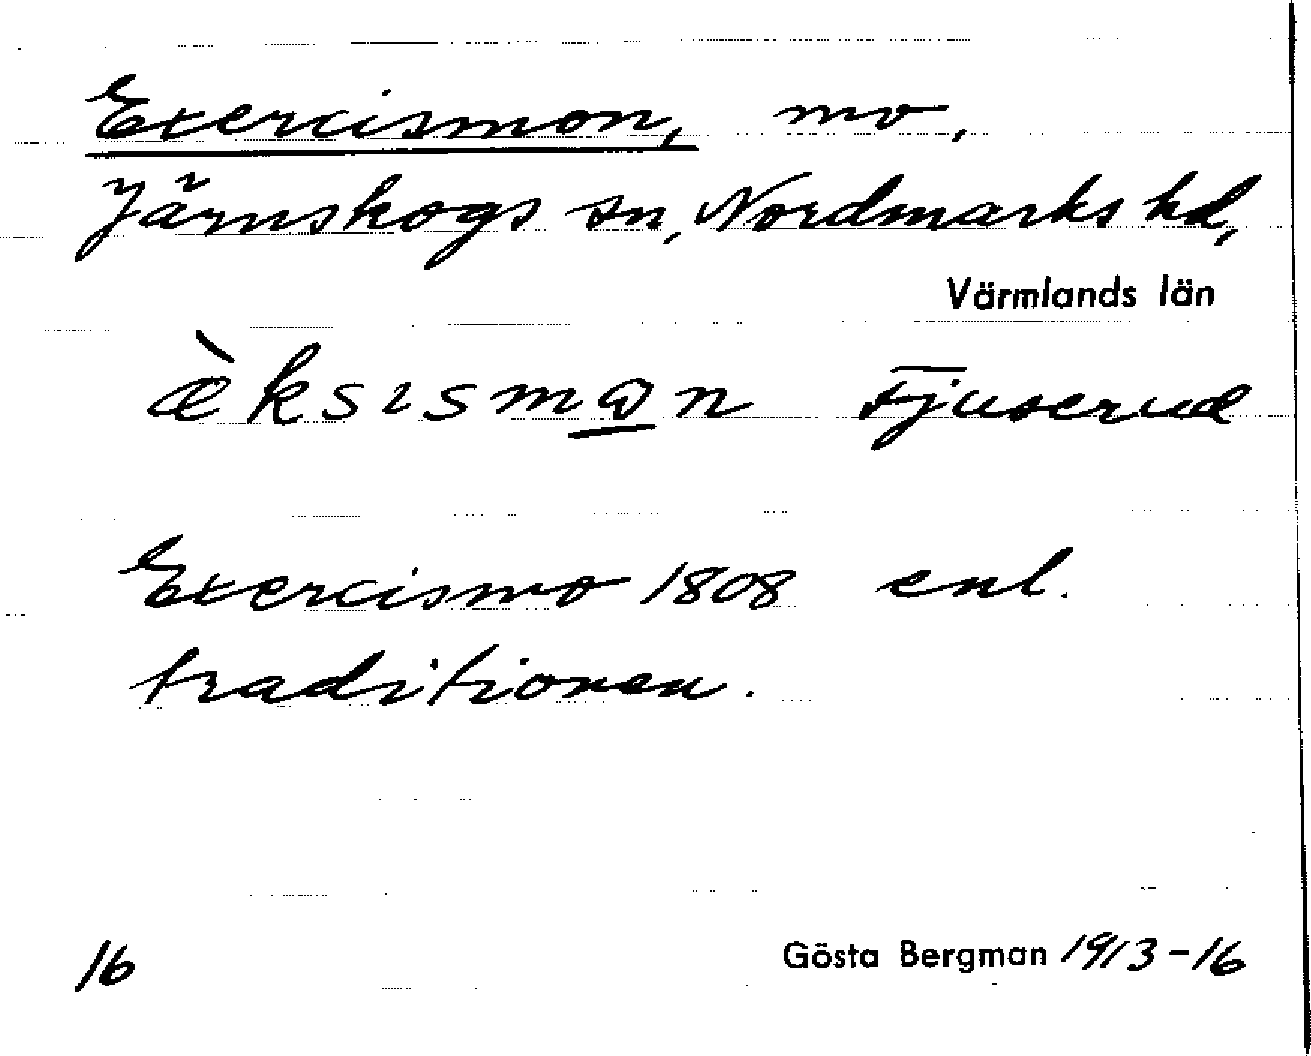 Exercismon, mo,
Järnskogs sn, Nordmarks hd,
Värmlands län
æ̀ksısmɷn Fjuserud
Exercismo 1808 enl.
traditionen.
16 Gösta Bergman 1913-16